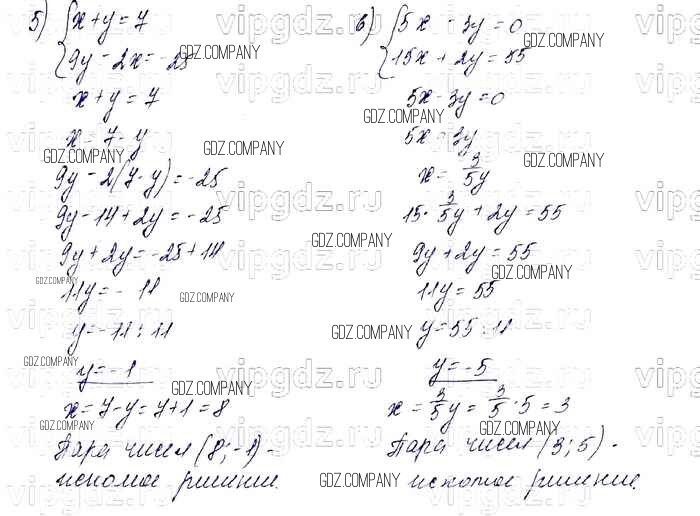 5) { x + y = 7
9y - 2x = -25
x + y = 7
x = 7 - y
9y - 2(7 - y) = -25
9y - 14 + 2y = -25
9y + 2y = -25 + 14
11y = - 11
y = -11 : 11
y = -1
x = 7 - y = 7 + 1 = 8
Пара чисел (8; -1) -
искомое решение.
6) { 5x - 3y = 0
15x + 2y = 55
5x - 3y = 0
5x = 3y
x = 3/5 y
15 · 3/5 y + 2y = 55
9y + 2y = 55
11y = 55
y = 55 : 11
y = -5
x = 3/5 y = 3/5 · 5 = 3
Пара чисел (3; 5) -
искомое решение.
GDZ.COMPANY
vipgdz.ru